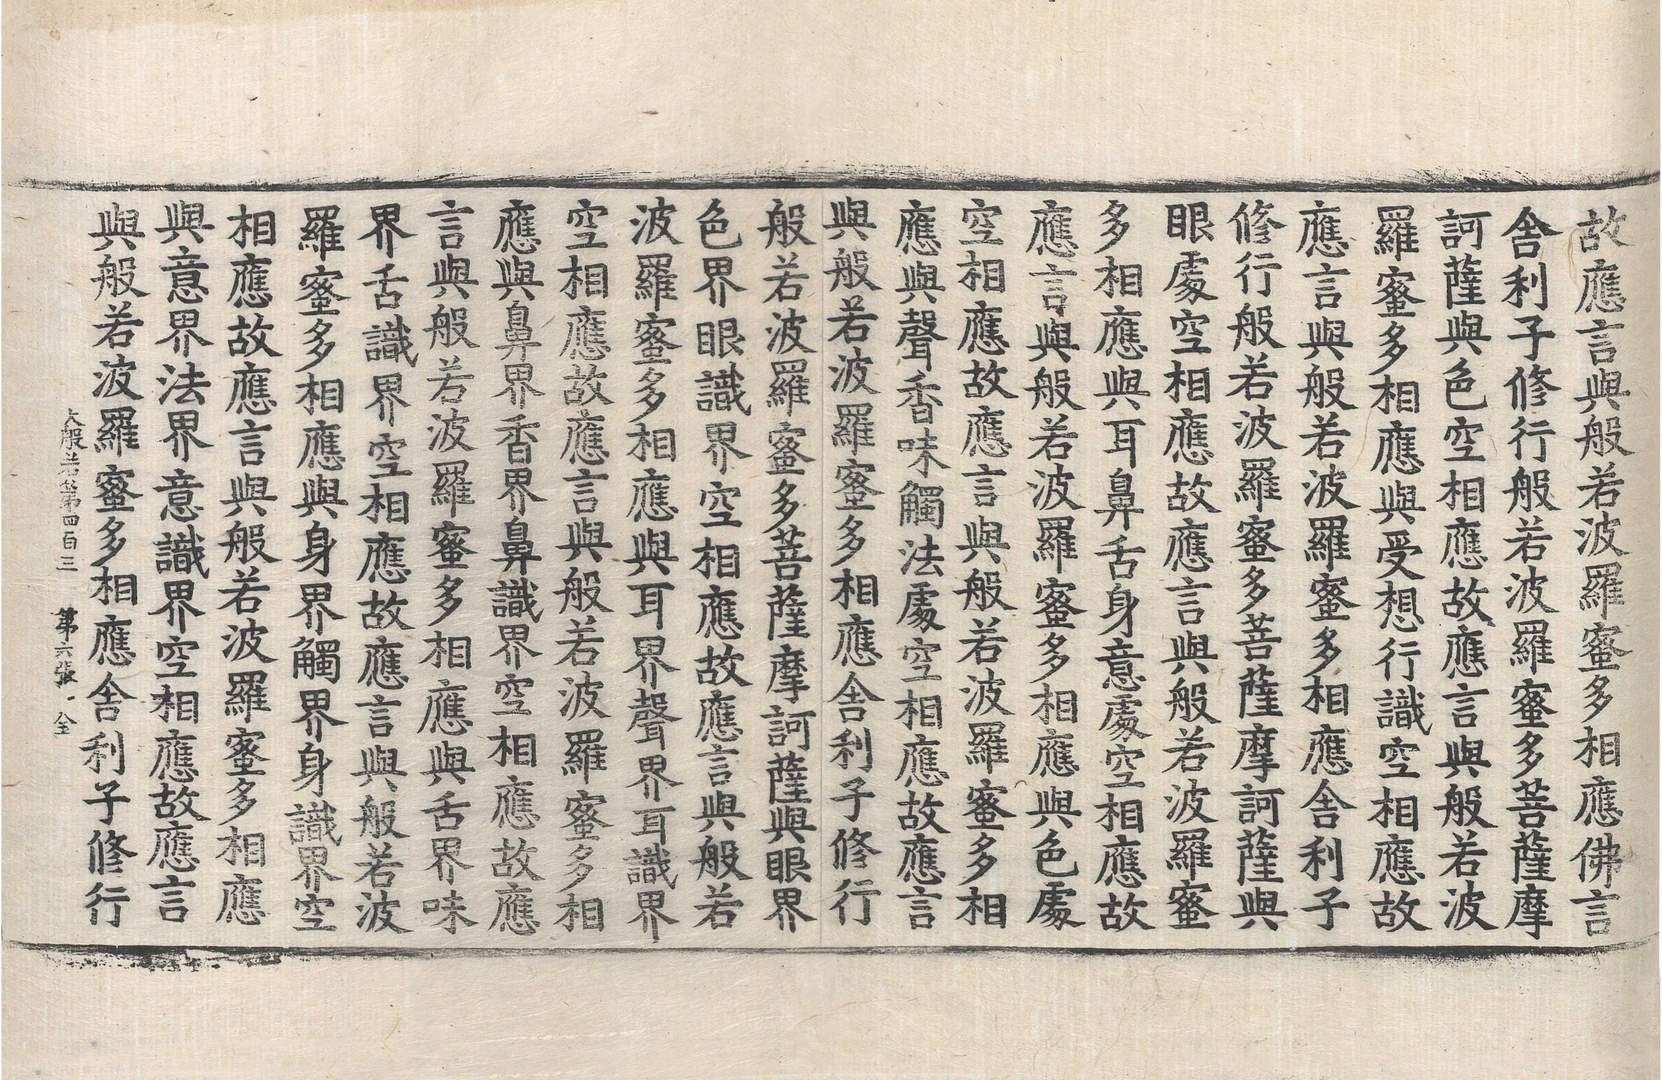 故應言與般若波羅蜜多相應佛言
舍利子修行般若波羅蜜多菩薩摩
訶薩與色空相應故應言與般若波
羅蜜多相應與受想行識空相應故
應言與般若波羅蜜多相應舍利子
修行般若波羅蜜多菩薩摩訶薩與
眼處空相應故應言與般若波羅蜜
多相應與耳鼻舌身意處空相應故
應言與般若波羅蜜多相應與色處
空相應故應言與般若波羅蜜多相
應與聲香味觸法處空相應故應言
與般若波羅蜜多相應舍利子修行
般若波羅蜜多菩薩摩訶薩與眼界
色界眼識界空相應故應言與般若
波羅蜜多相應與耳界聲界耳識界
空相應故應言與般若波羅蜜多相
應與鼻界香界鼻識界空相應故應
言與般若波羅蜜多相應與舌界味
界舌識界空相應故應言與般若波
羅蜜多相應與身界觸界身識界空
相應故應言與般若波羅蜜多相應
與意界法界意識界空相應故應言
與般若波羅蜜多相應舍利子修行
大般若第四百三 第六張 全